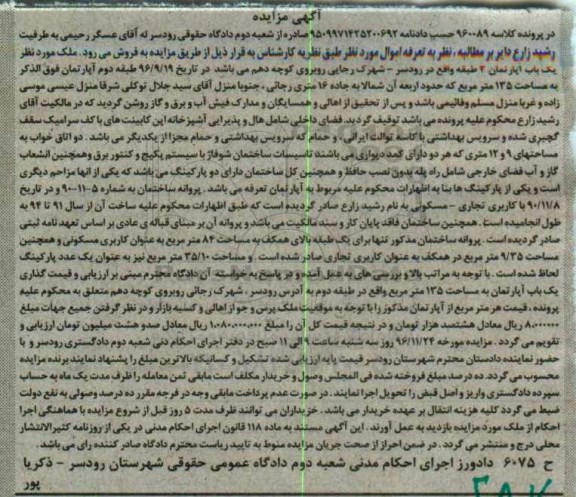 آگهی مزایده
در پرونده کلاسه 960089 حسب دادنامه 9509971425200692 صادره از شعبه دوم دادگاه حقوقی رودسر له آقای عسگر رحیمی به طرفیت
رشید زارع دایر بر مطالبه ، نظر به تعرفه اموال مورد نظر طبق نظریه کارشناس به قرار ذیل از طریق مزایده به فروش می رود. ملک مورد نظر
یک باب آپارتمان 3 طبقه واقع در رودسر - شهرک رجایی روبروی کوچه دهم می باشد در تاریخ 96/9/19 طبقه دوم آپارتمان فوق الذکر
به مساحت 135 متر مربع که حدود اربعه آن شمالا به جاده 16 متری رجائی ، جنوبا منزل آقای سید جلال توکلی شرقا منزل عیسی موسی
زاده و غربا منزل مسلم وقائیمی باشد و پس از تحقیق از اهالی و همسایگان و مدارک فیش آب و برق و گاز روشن گردید که در مالکیت آقای
رشید زارع محکوم علیه پرونده می باشد توقیف گردید. فضای داخلی شامل هال و پذیرایی آشپزخانه اپن کابینت های با کف سرامیک سقف
گچبری شده و سرویس بهداشتی با کاسه توالت ایرانی ، و حمام که سرویس بهداشتی و حمام مجزا از یکدیگر می باشد . دو اتاق خواب به
مساحتهای 9 و 12 متری که هر دو دارای کمد دیواری می باشند تاسیسات ساختمان شوفاژ با سیستم پکیج و کنتور برق و همچنین انشعاب
گاز و آب فضای خارجی شامل راه پله بدون نصب حافظ و همچنین کل ساختمان دارای دو پارکینگ می باشد که یکی از آنها مزاحم دیگری
است و یکی از پارکینگ ها بنا به اظهارات محکوم علیه مربوط به آپارتمان تعرفه می باشد . پروانه ساختمان به شماره 5-11-900 و در تاریخ
90/11/8 با کاربری تجاری - مسکونی به نام رشید زارع صادر گردیده است که طبق اظهارات محکوم علیه ساخت آن از سال 91 تا 94 به
طول انجامیده است . همچنین ساختمان فاقد پایان کار و سند مالکیت می باشد و پروانه آن بر مبنای قباله ی عادی بر اساس تعهد نامه ثبتی
صادر گردیده است . پروانه ساختمان مذکور تنها برای یک طبقه بالای همکف به مساحت 84 متر مربع به عنوان کاربری مسکونی و همچنین
مساحت 9/35 متر مربع در همکف به عنوان کاربری تجاری صادر شده است . و مساحت 35/10 متر مربع نیز به عنوان یک عدد پارکینگ
لحاظ شده است . با توجه به مراتب بالا و بررسی های به عمل آمده و در پاسخ به خواسته آن دادگاه محترم مبنی بر ارزیابی و قیمت گذاری
یک باب آپارتمان به مساحت 135 متر مربع واقع در طبقه دوم به آدرس رودسر ، شهرک رجائی روبروی کوچه دهم متعلق به محکوم علیه
پرونده ، قیمت هر متر مربع از آپارتمان مذکور را با توجه به موقعیت ملک پرس و جو از اهالی و کسبه بازار و در نظر گرفتن جمیع جهات مبلغ
8.000.000 ریال معادل هشتصد هزار تومان و در نتیجه قیمت کل آن را مبلغ 1.080.000.000 ریال معادل صدو هشت میلیون تومان ارزیابی و
تقویم می گردد . مزایده مورخه 96/11/24 روز سه شنبه ساعت 9 الی 11 صبح در دفتر اجرای احکام دنی شعبه دوم دادگستری رودسر و با
حضور نماینده دادستان محترم شهرستان رودسر قیمت پایه ارزیابی شده تشکیل و کسانیکه بالاترین مبلغ را پیشنهاد نمایند برنده مزایده
محسوب می گردد. ده درصد مبلغ فروخته شده فی المجلس وصول و خریدار مکلف است مابقی ثمن معامله را ظرف مدت یک ماه به حساب
سپرده دادگستری واریز و اصل فیش را تحویل اجرا نمایند . در صورت عدم پرداخت مابقی وجه در فرجه مقرر ده درصد وصولی به نفع دولت
ضبط می گردد کلیه هزینه انتقال بر عهده خریدار می باشد . خریداران می توانند ظرف مدت 5 روز قبل از شروع مزایده با هماهنگی اجرا
احکام از ملک مورد مزایده بازدید به عمل آورند . این آگهی مستند به ماده 118 قانون اجرای احکام مدنی در یکی از روزنامه کثیرالانتشار
محلی درج و منتشر می گردد . در ضمن احراز از صحت جریان مزایده منوط به تایید ریاست محترم دادگاه صادر کننده رای می باشد.
ح 6075 دادورز اجرای احکام مدنی شعبه دوم دادگاه عمومی حقوقی شهرستان رودسر - ذکریا
پور